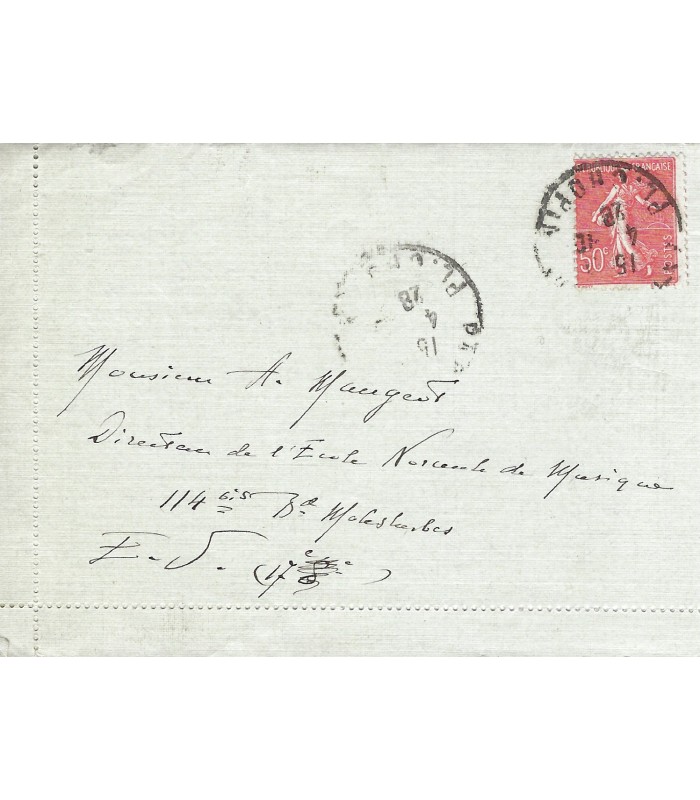 RÉPUBLIQUE FRANÇAISE
50c
POSTES
PL. CHOPIN
15
4
28
PL. CHO
15
4
28
Monsieur A. Mangeot
Directeur de l'Ecole Normale de Musique
114 bis Bd Malesherbes
E.V. (17e)